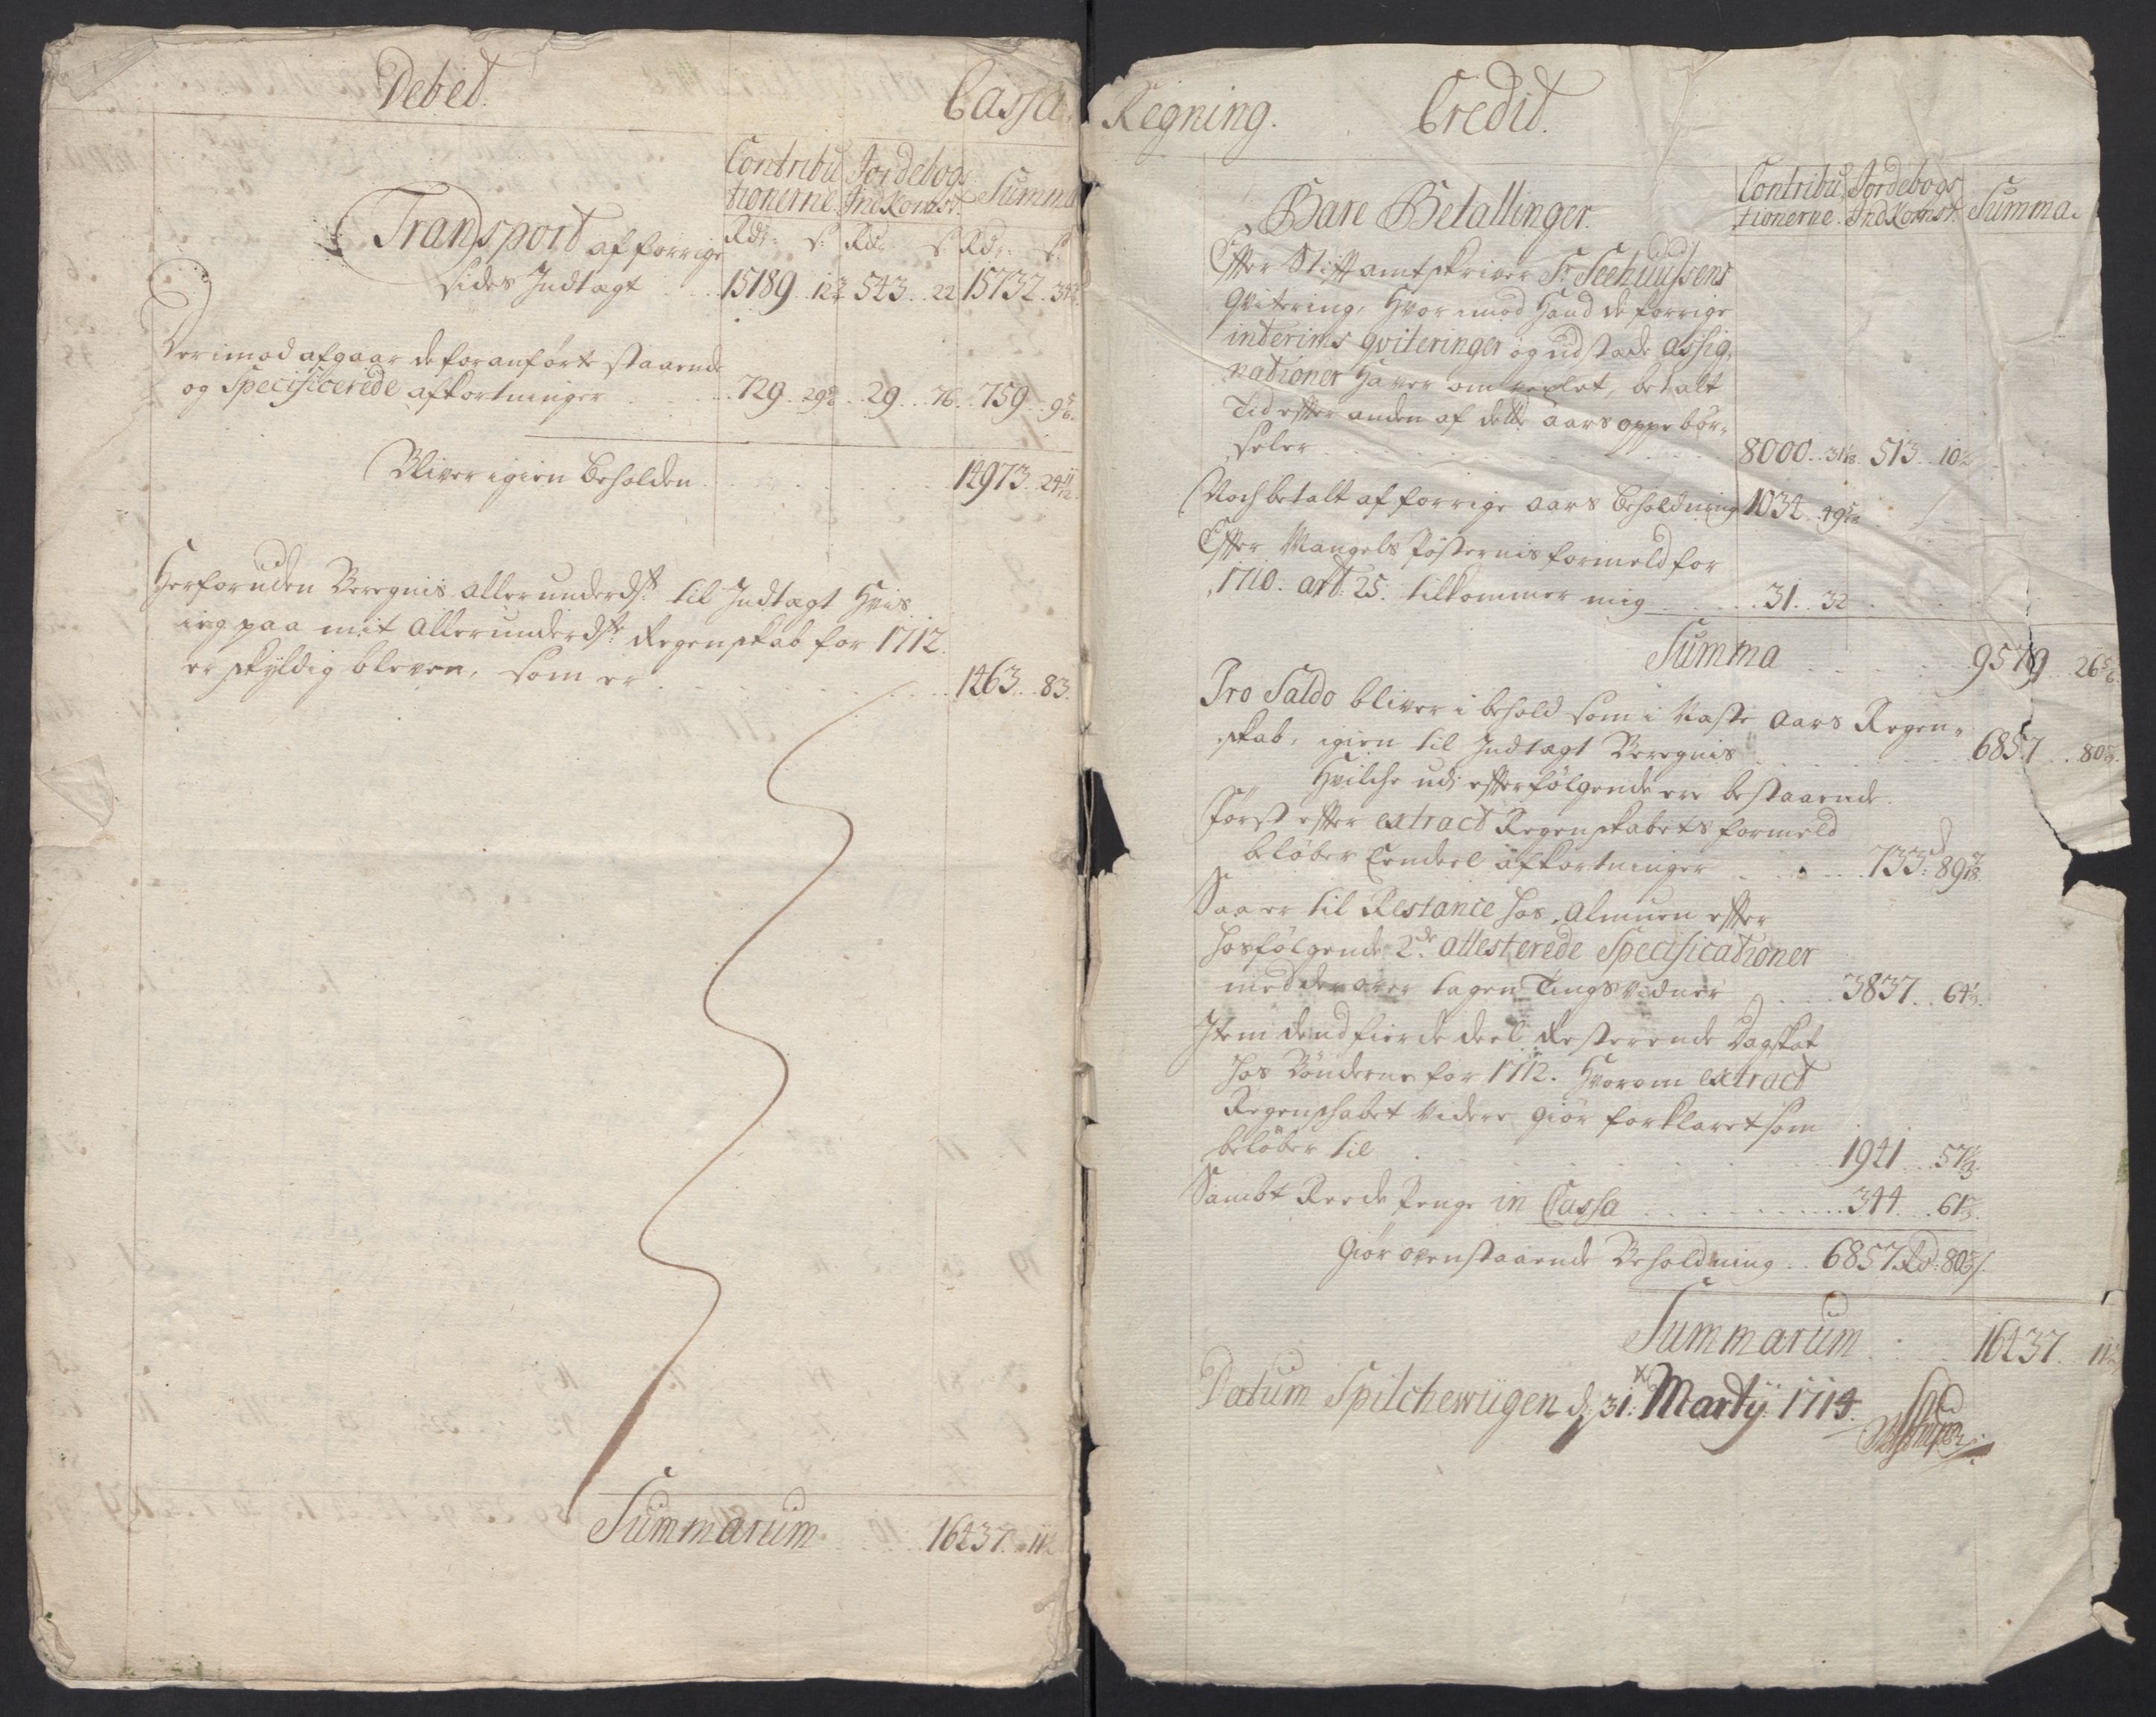 Debet.
Cassa
Contribu Jordebogs Summa
tionerne. IndKomst.
Rdr: s: Rdr: s Rdr: s:
Transport af forrige
sides Indtægt 15189. 12 543. 22 15732. 34
Derimod afgaar de foranførte staaende
og Specificerede afkortninger 729. 29 29. 76. 759. 9 5/6.
Bliver igien beholden 14973. 24 11/12.
Herforuden Beregnis allerunderdst: til Indtægt Hvis
ieg paa mit allerunderdste Regenskab for 1712.
er skyldig bleven, som er 1463. 83.
Summarum 16437. 11
Regning. Credit.
Contribu Jordebogs
tionerne. IndKomst. Summa.
Bare Betallinger.
Efter Stiftamtskriver Sr. Seehuusens
qvitering, Hvorimod Hand de forrige
interims qviteringer og udstæde assig-
nationer Haver omvexlet, betalt
Tid efter anden af dette aars oppebør-
seler 8000. 31 513. 10
Noch betalt af forrige aars beholdning 1034. 49
Efter Mangels Posternis formeld for
1710. art: 25. tilkommer mig 31. 32
Summa 9579. 26 5/6
Pro Saldo bliver i behold som i Næste aars Regen-
skab, igien til Indtægt Beregnis 6857. 80
Hvilche udj efterfølgende ere bestaaende.
Først efter extract Regenskabets formeld
beløber Eendeel afkortninger 733: 89
Saa er til Restance hos Almuen efter
hosfølgende 2de attesterede Specificationer
med derover tagen Tingsvidner 3837. 64
Item dend fierde deel Resterende Dagskat
hos Bønderne for 1712. Hvorom extract
Regenskabet videre giør forklaret som
beløber til 1941. 57
Sambt Reede Penge in Cassa 344. 61
Giør ovenstaaende Beholdning 6857 Rdr: 80 s.
Summarum 16437. 11
Datum Spilchewiigen d: 31: Martij 1714.